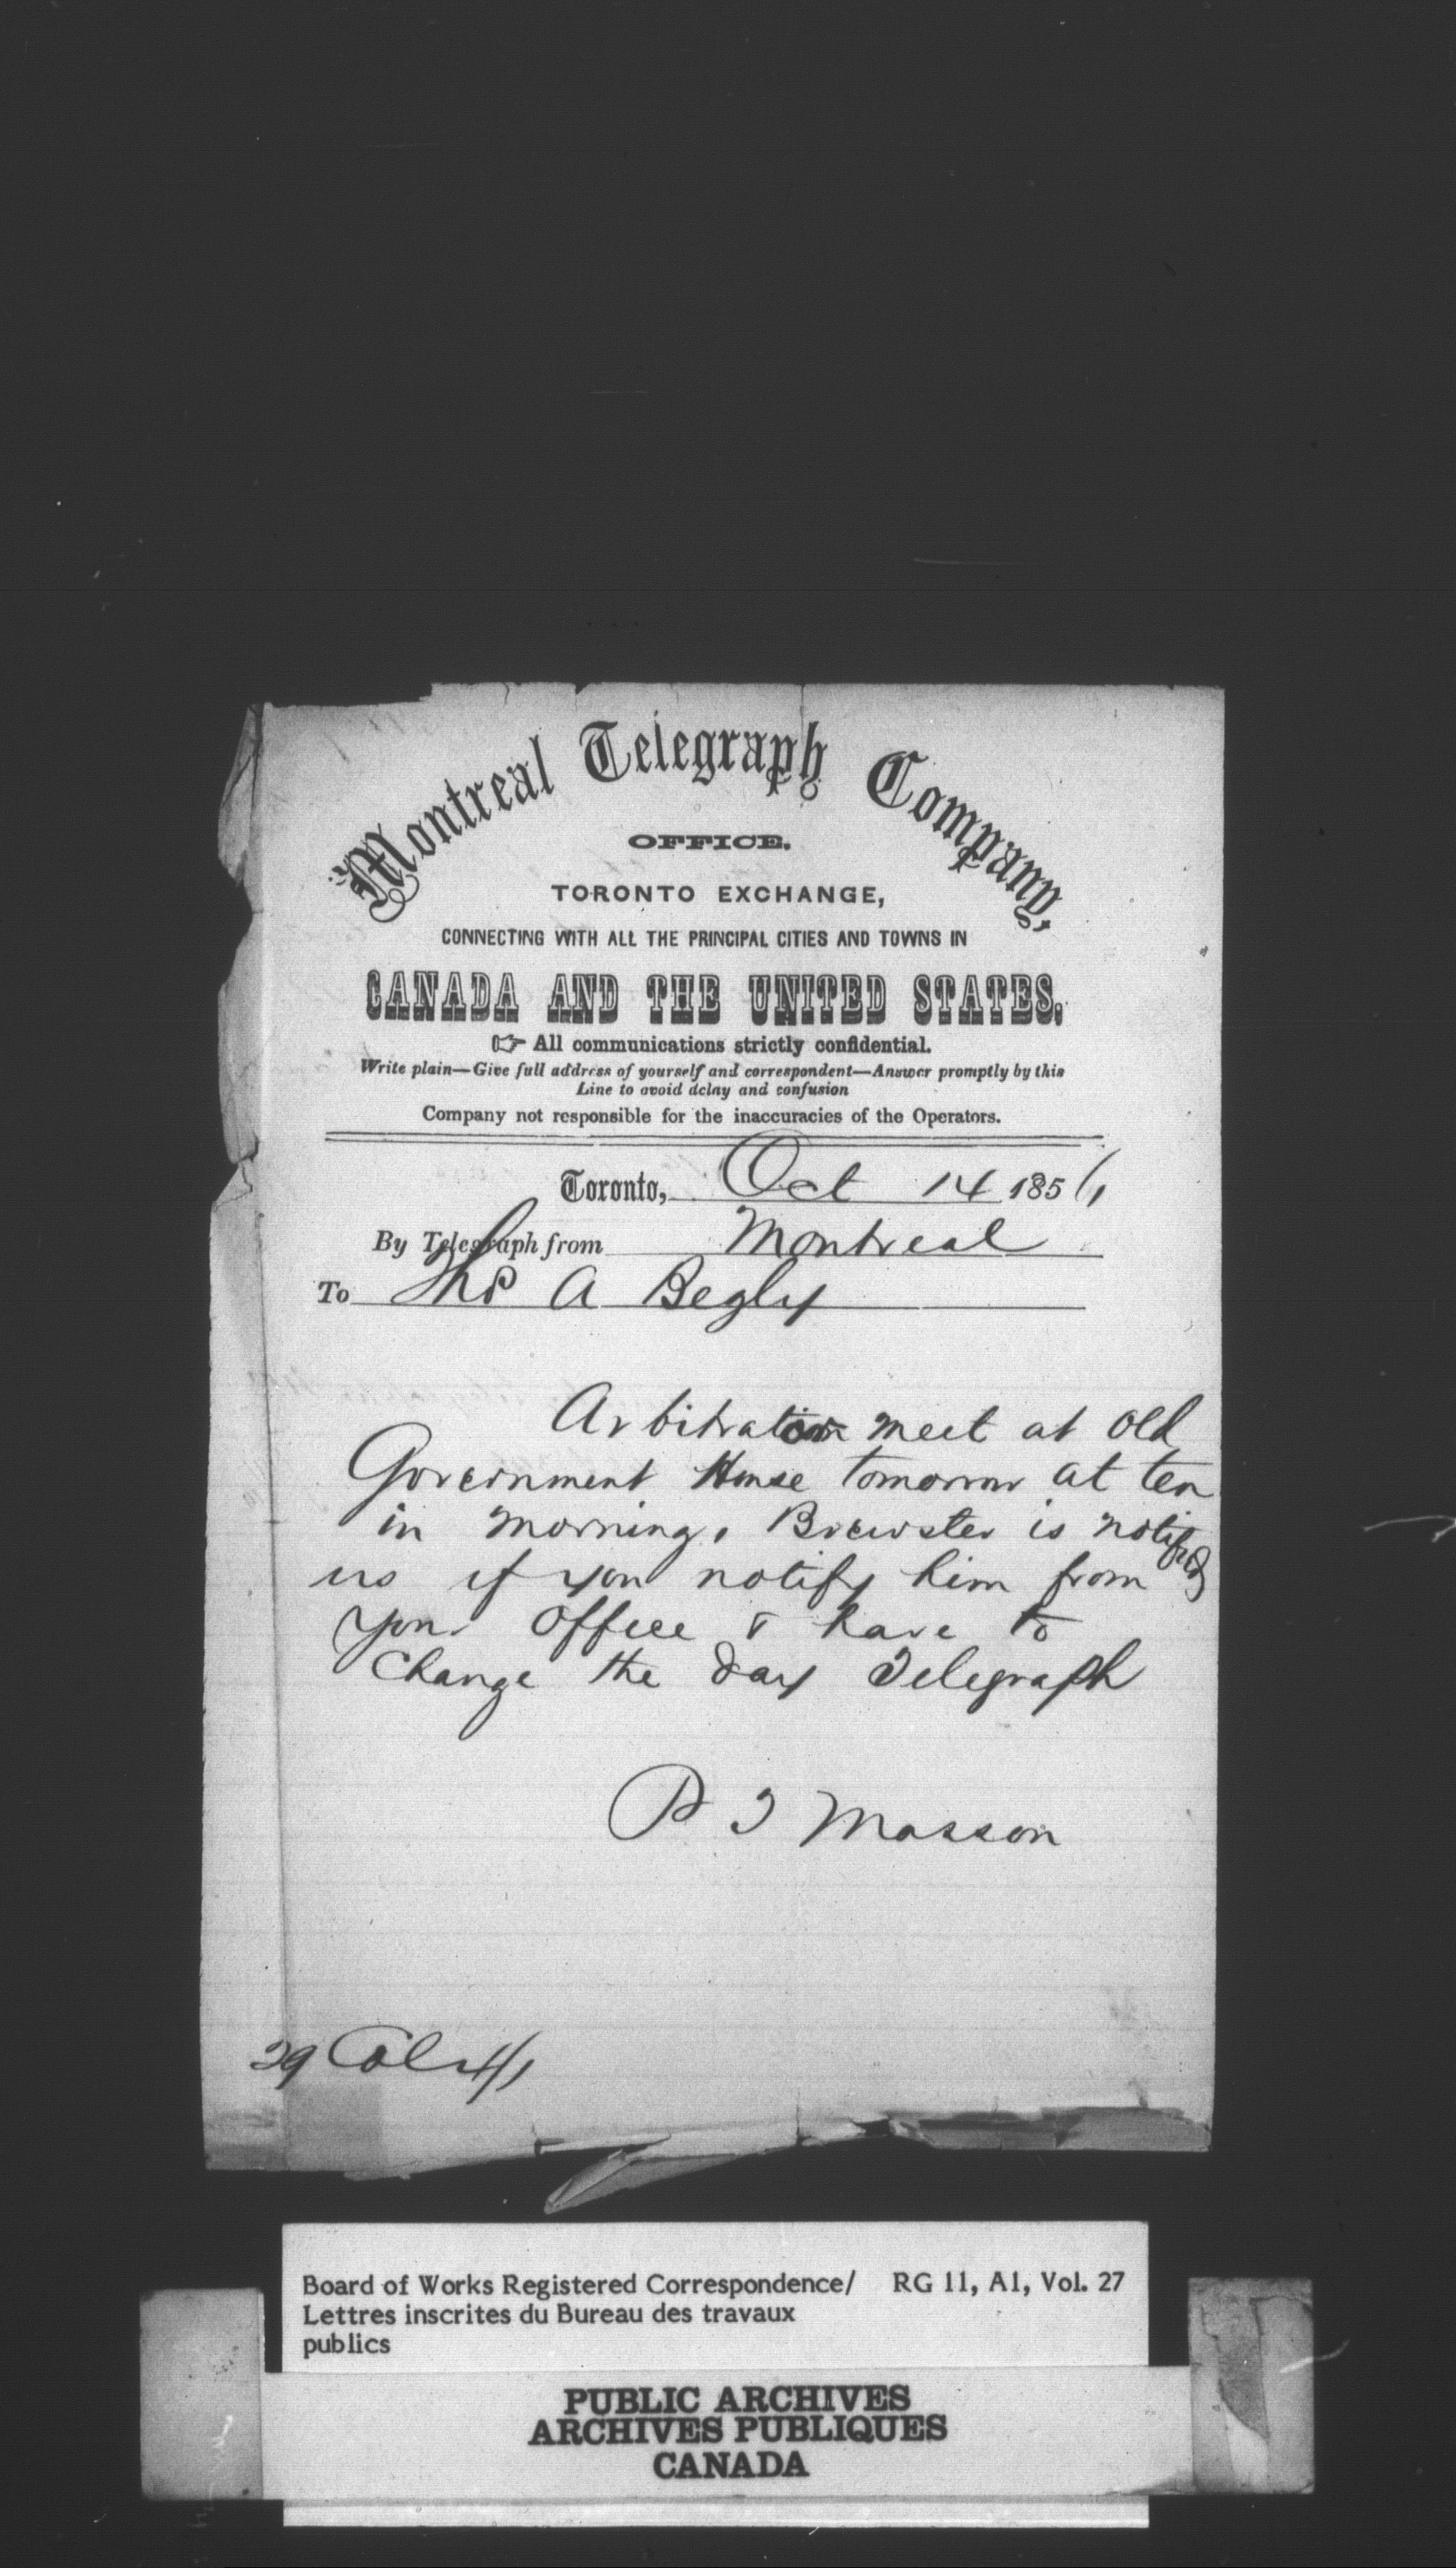 Montreal Telegraph Company,
OFFICE,
TORONTO EXCHANGE,
CONNECTING WITH ALL THE PRINCIPAL CITIES AND TOWNS IN
CANADA AND THE UNITED STATES.
☞ All communications strictly confidential.
Write plain—Give full address of yourself and correspondent—Answer promptly by this
Line to avoid delay and confusion
Company not responsible for the inaccuracies of the Operators.
Toronto, Oct 14 185
By Telegraph from Montreal
To Thos A Begly
meet at Old
Government House tomorrow at ten
in morning, Brewster is notifying
us if you notify him from
your Office & have to
Change the day Telegraph
P J Masson
29 Col
Board of Works Registered Correspondence/ RG 11, A1, Vol. 27
Lettres inscrites du Bureau des travaux
publics
PUBLIC ARCHIVES
ARCHIVES PUBLIQUES
CANADA